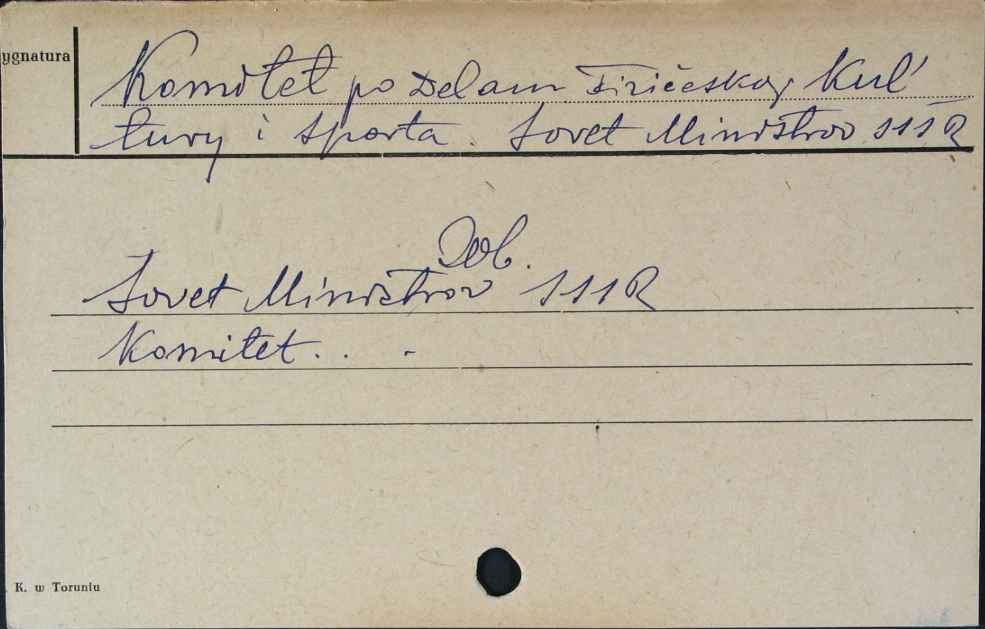 ygnatura
Komitet po Delam Fizičeskoj Kul'
tury i Sporta. Sovet Ministrov SSSR
Sovet Ministrov SSSR
Komitet. . .
K. w Toruniu